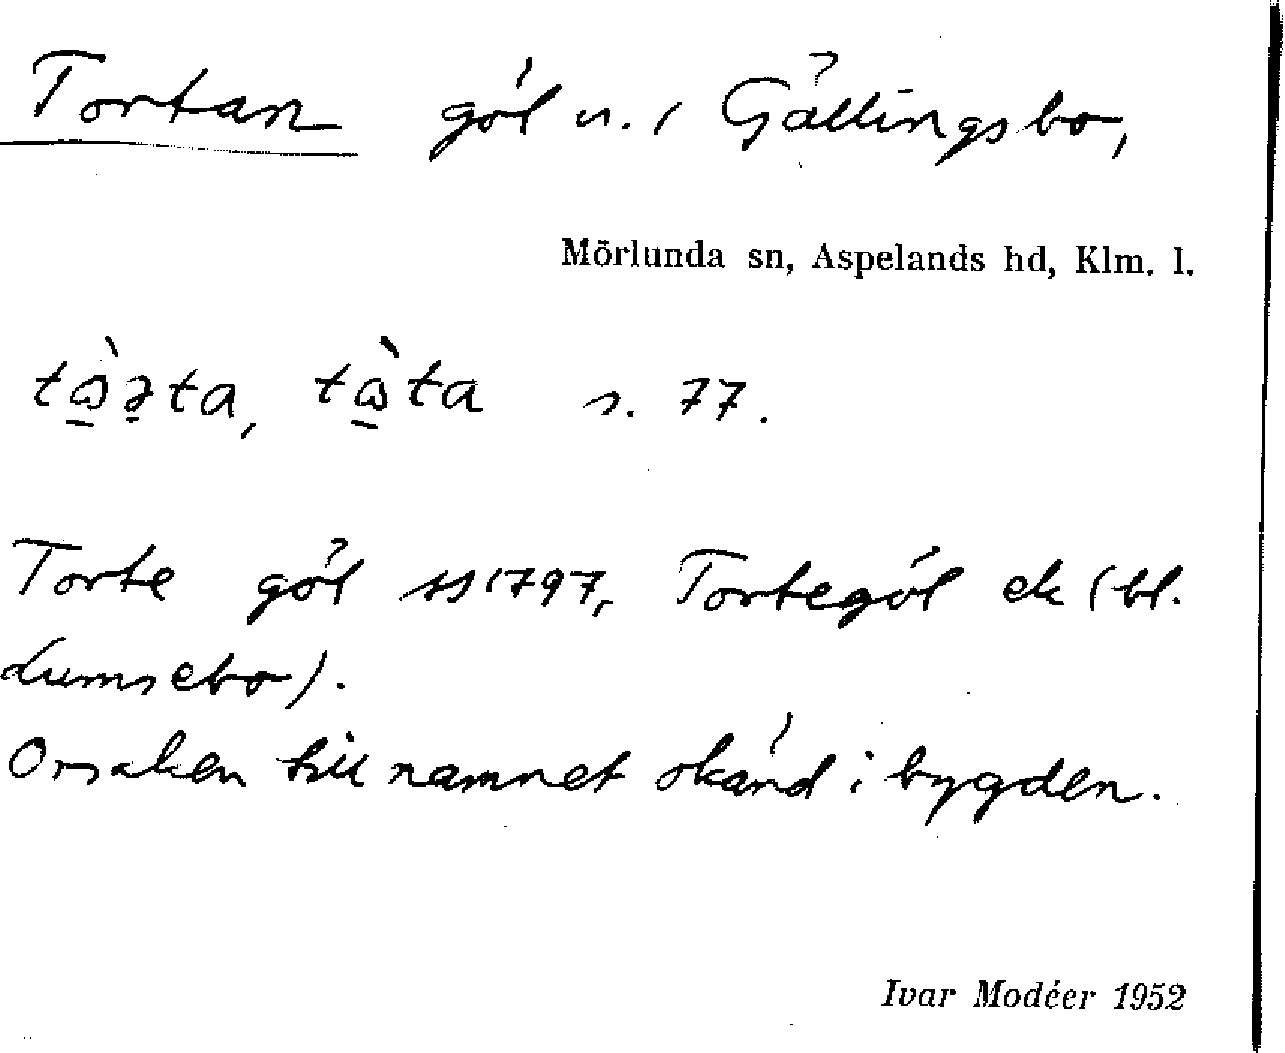 Tortan göl n. i Gällingsbo,
Mörlunda sn, Aspelands hd, Klm. l.
tɷ̠̀ə̠ta, tɷ̠̀ta s. 77.
Torte göl ss 1797, Tortegöl ek (bl.
Lumsebo).
Orsaken till namnet okänd i bygden.
Ivar Modéer 1952